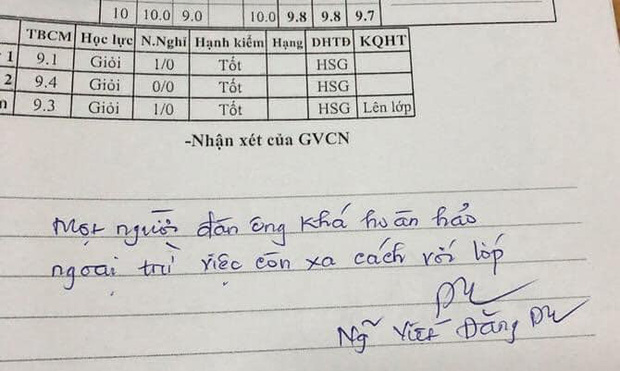 10 10.0 9.0 10.0 9.8 9.8 9.7
TBCM Học lực N.Nghĩ Hạnh kiểm Hạng DHTĐ KQHT
1 9.1 Giỏi 1/0 Tốt HSG
2 9.4 Giỏi 0/0 Tốt HSG
n 9.3 Giỏi 1/0 Tốt HSG Lên lớp
-Nhận xét của GVCN
Một người đàn ông khá hoàn hảo
ngoại trừ việc còn xa cách với lớp
Viết Đăng Du